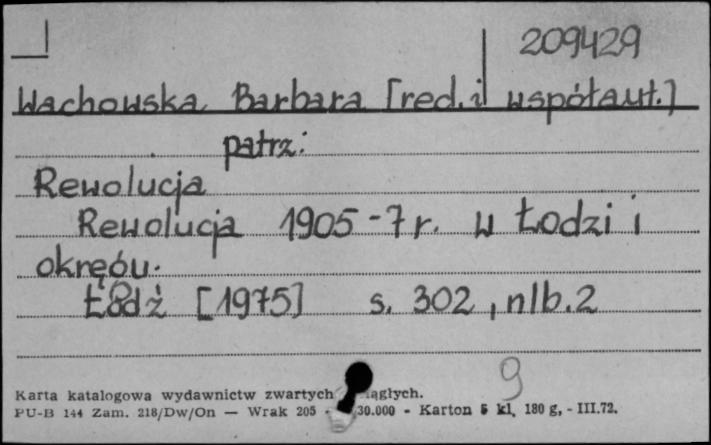 209429
Wachowska, Barbara [red. i współaut.]
patrz:
Rewolucja
Rewolucja 1905-7 r. w Łodzi i
okręgu.
Łódź [1975] s. 302, nlb. 2
9
Karta katalogowa wydawnictw zwartych
PU-B 144 Zam. 218/Dw/On — Wrak 205 - 30.000 - Karton 5 kl, 180 g, - III.72.